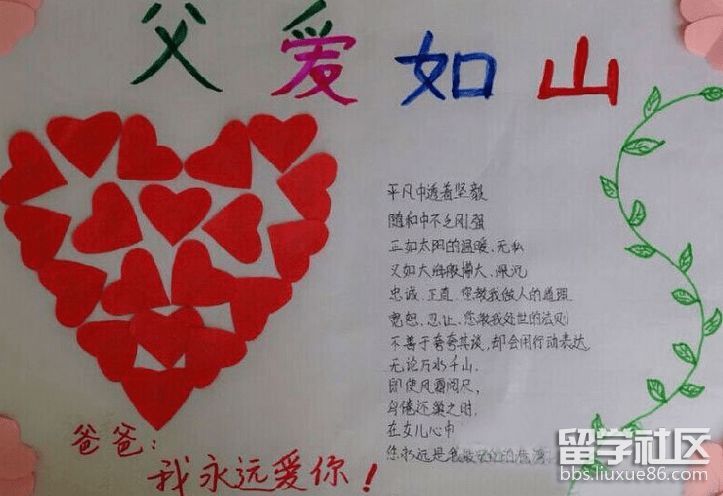 父爱如山
平凡中透着坚毅
随和中不乏刚强
正如太阳的温暖、无私
又如大海般博大、深沉
忠诚、正直、您教我做人的道理
宽恕、忍让、您教我处世的法则
不善于夸夸其谈,却会用行动表达
无论万水千山,
即使风霜
倦还巢之时,
在女儿心中
您永远是我
爸爸:
我永远爱你!
留学社区
bbs.liuxue86.com